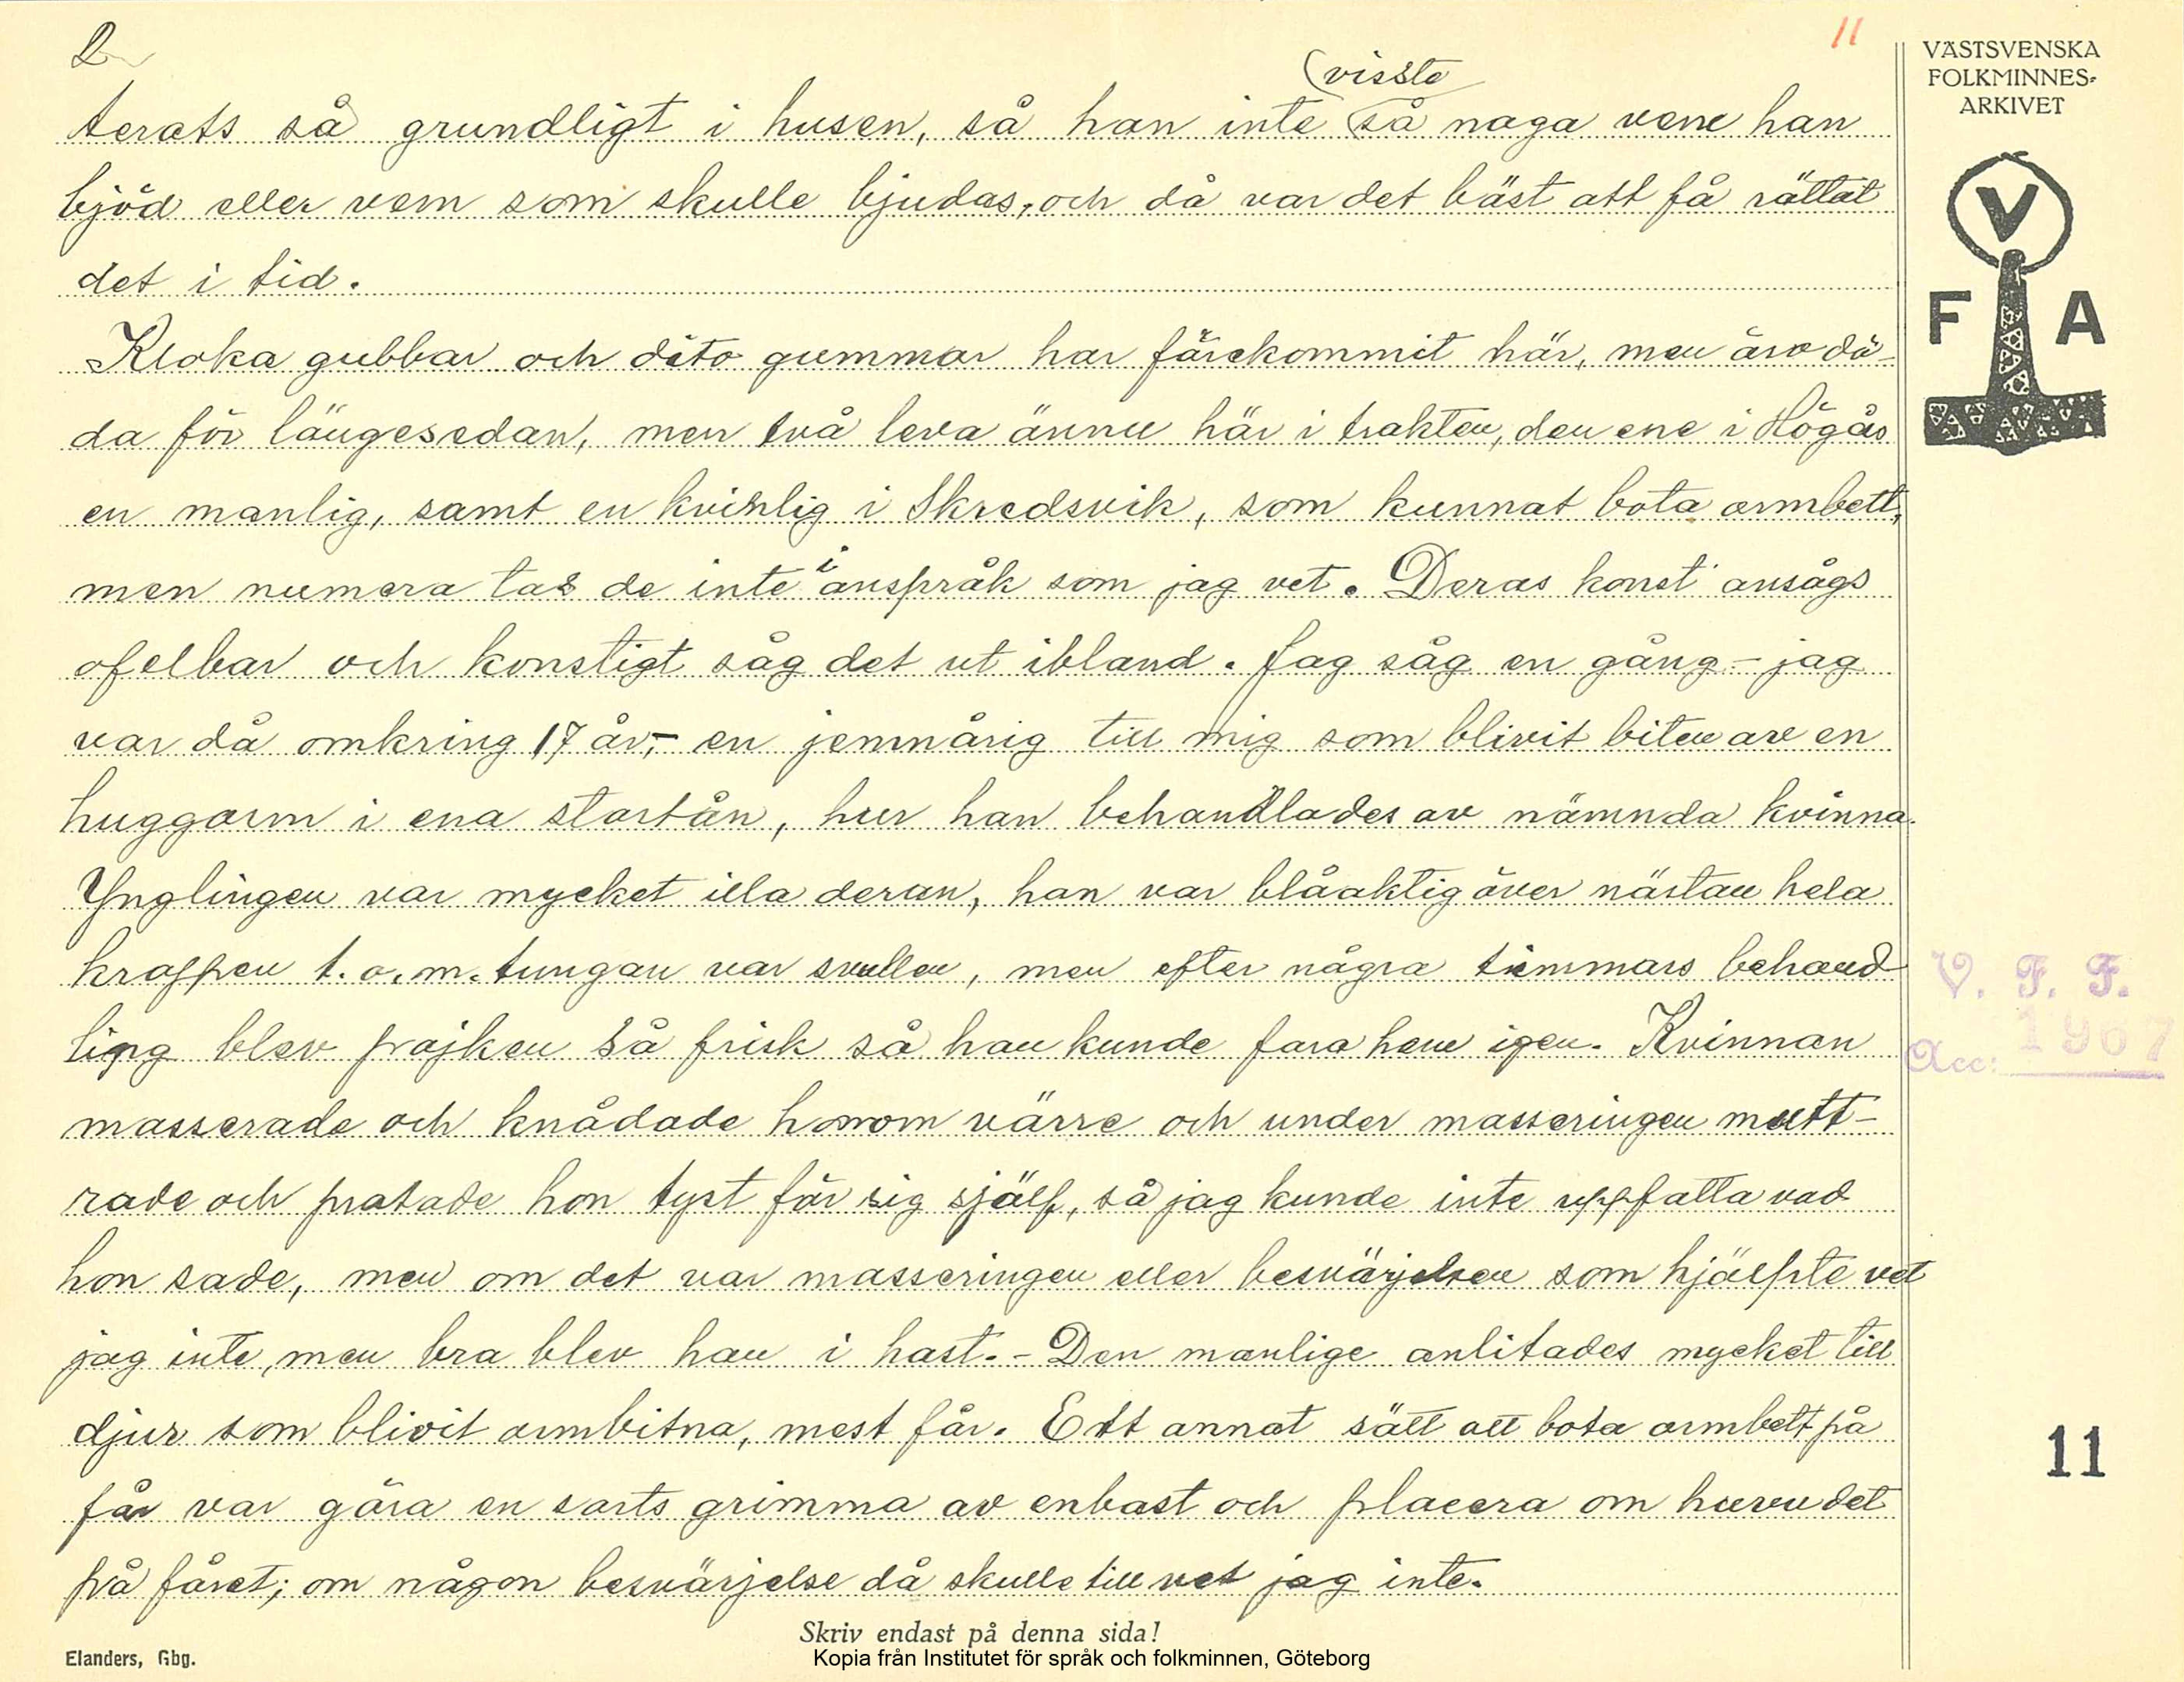 2
11
VÄSTSVENSKA
FOLKMINNES-
ARKIVET
V
F A
(visste
terats så grundligt i husen, så han inte (så naga vem han
bjöd eller vem som skulle bjudas, och då var det bäst att få rättat
det i tid.
Kloka gubbar och dito gummor har förekommit här, men äro dö-
da för längesedan, men två leva ännu här i trakten, den ene i Högås
en manlig, samt en kvinlig i Skredsvik, som kunnat bota ormbett,
men numera tas de inte i anspråk som jag vet. Deras konst ansågs
ofelbar och konstigt såg det ut ibland. Jag såg en gång - jag
var då omkring 17 år, - en jemnårig till mig som blivit biten av en
huggorm i ena stortån, hur han behandlades av nämnda kvinna.
Ynglingen var mycket illa deran, han var blåaktig över nästan hela
kroppen t.o.m. tungan var svullen, men efter några timmars behand
ling blev pojken så frisk så han kunde fara hem igen. Kvinnan
masserade och knådade honom värre och under masseringen mutt-
rade och pratade hon tyst för sig själf, så jag kunde inte uppfatta vad
hon sade, men om det var masseringen eller besvärjelsen som hjälpte vet
jag inte, men bra blev han i hast. - Den manlige anlitades mycket till
djur som blivit ormbitna, mest får. Ett annat sätt att bota ormbett på
får var göra en sorts grimma av enbast och placera om huvudet
på fåret; om någon besvärjelse då skulle till vet jag inte.
V. F. F.
Acc: 1967
11
Skriv endast på denna sida!
Elanders, Gbg.
Kopia från Institutet för språk och folkminnen, Göteborg